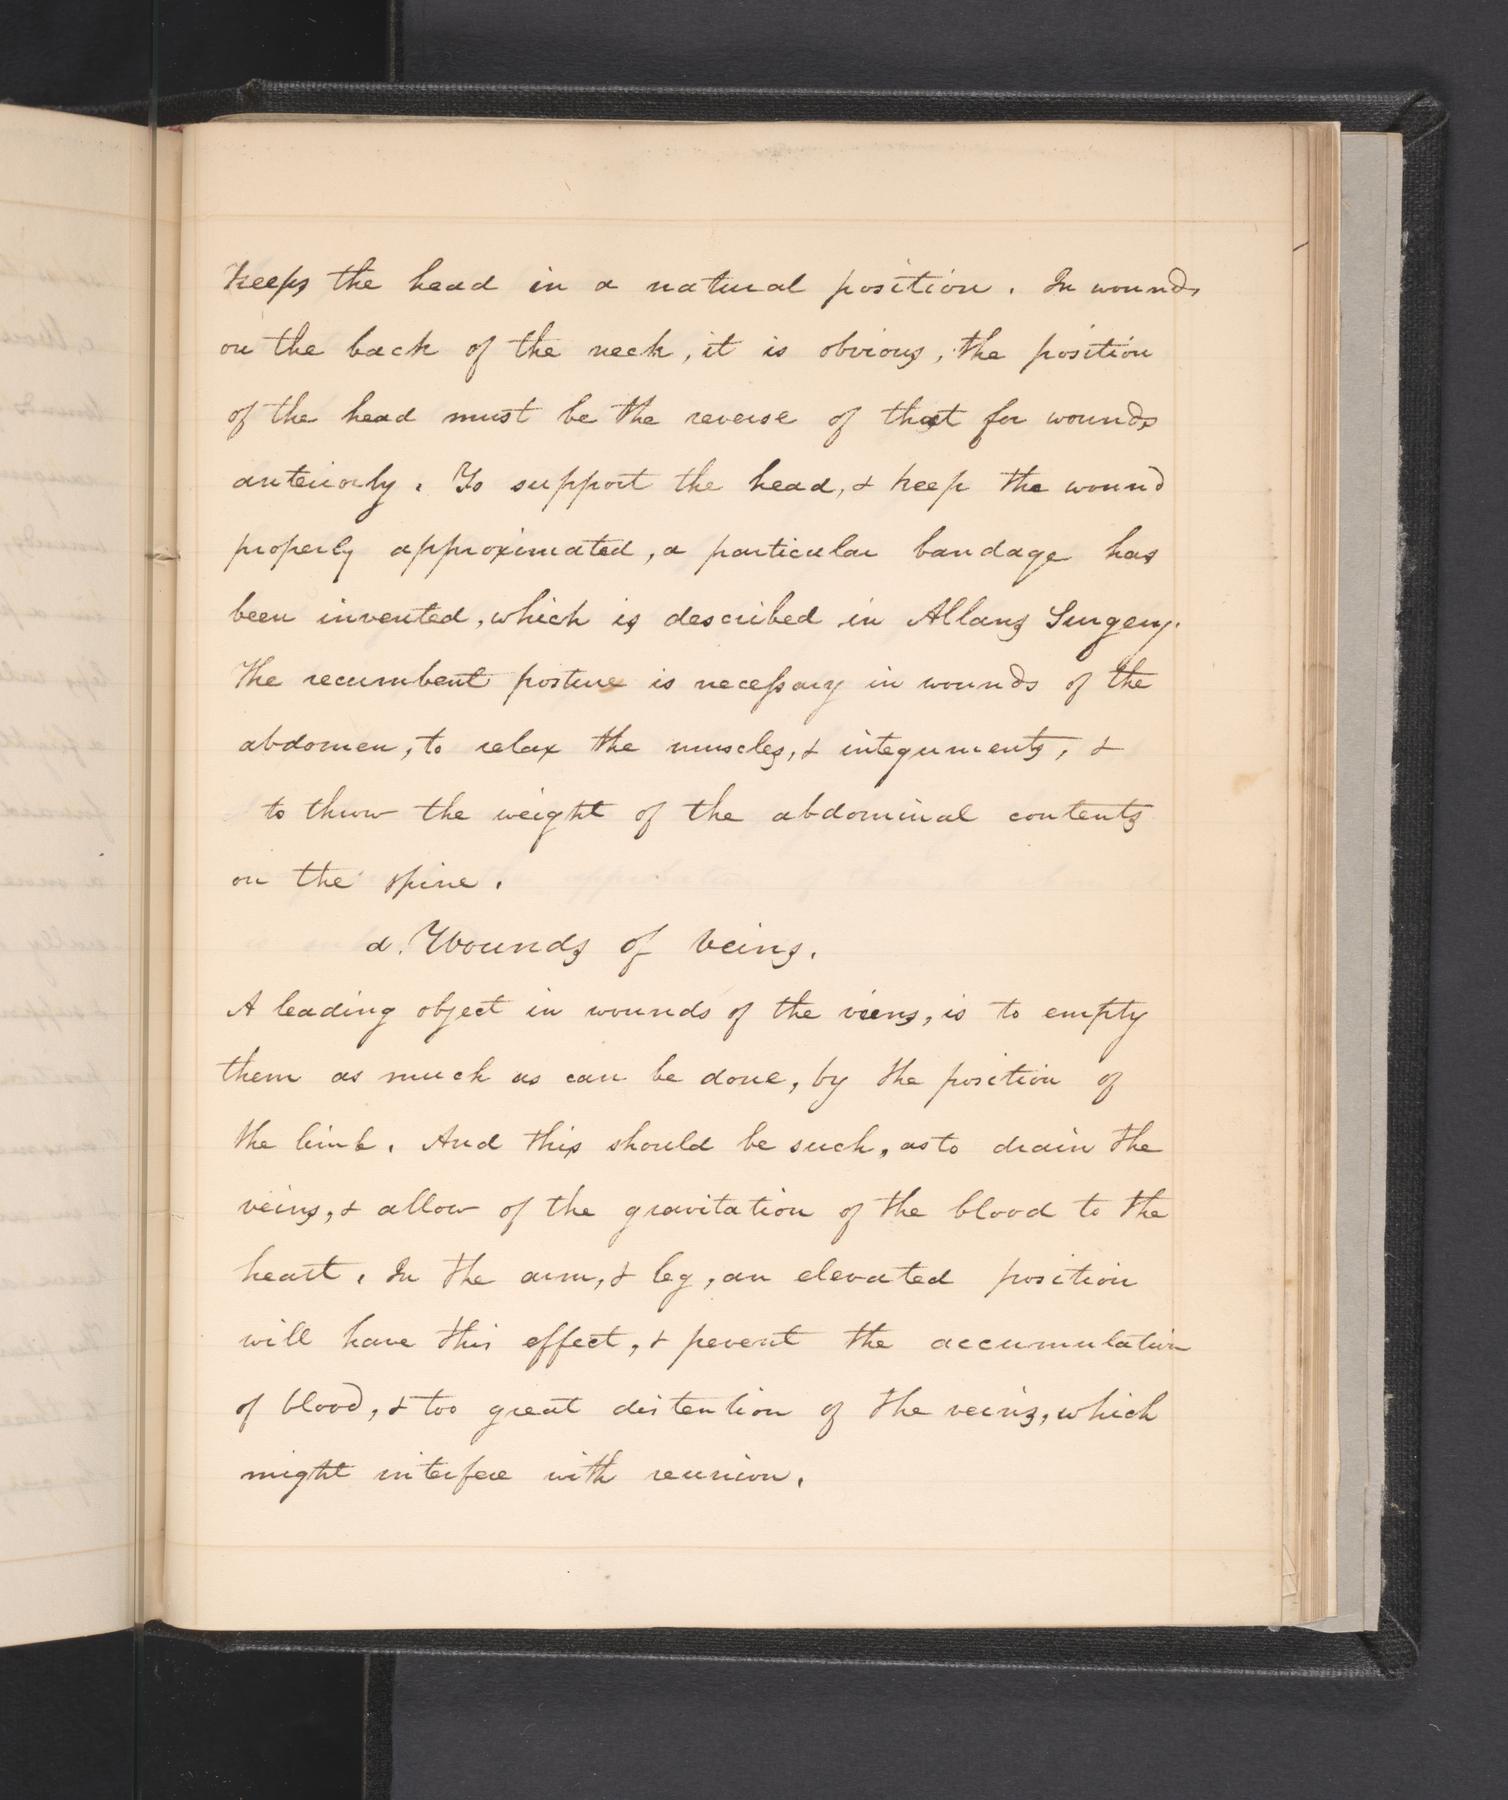 keeps the head in a natural position. In wounds
on the back of the neck, it is obvious, the position
of the head must be the reverse of that for wounds
anteriorly. To support the head, & keep the wound
properly approximated, a particular bandage has
been invented, which is described in Allans Surgery.
The recumbent posture is necessary in wounds of the
abdomen, to relax the muscles, & integuments, &
to throw the weight of the abdominal contents
on the spine.
d. Wounds of Veins.
A leading object in wounds of the viens, is to empty
them as much as can be done, by the position of
the limb. And this should be such, as to drain the
veins, & allow of the gravitation of the blood to the
heart. In the arm, & leg, an elevated position
will have this effect, & pevent the accumulation
of blood, & too great distention of the veins, which
might interfere with reunion.